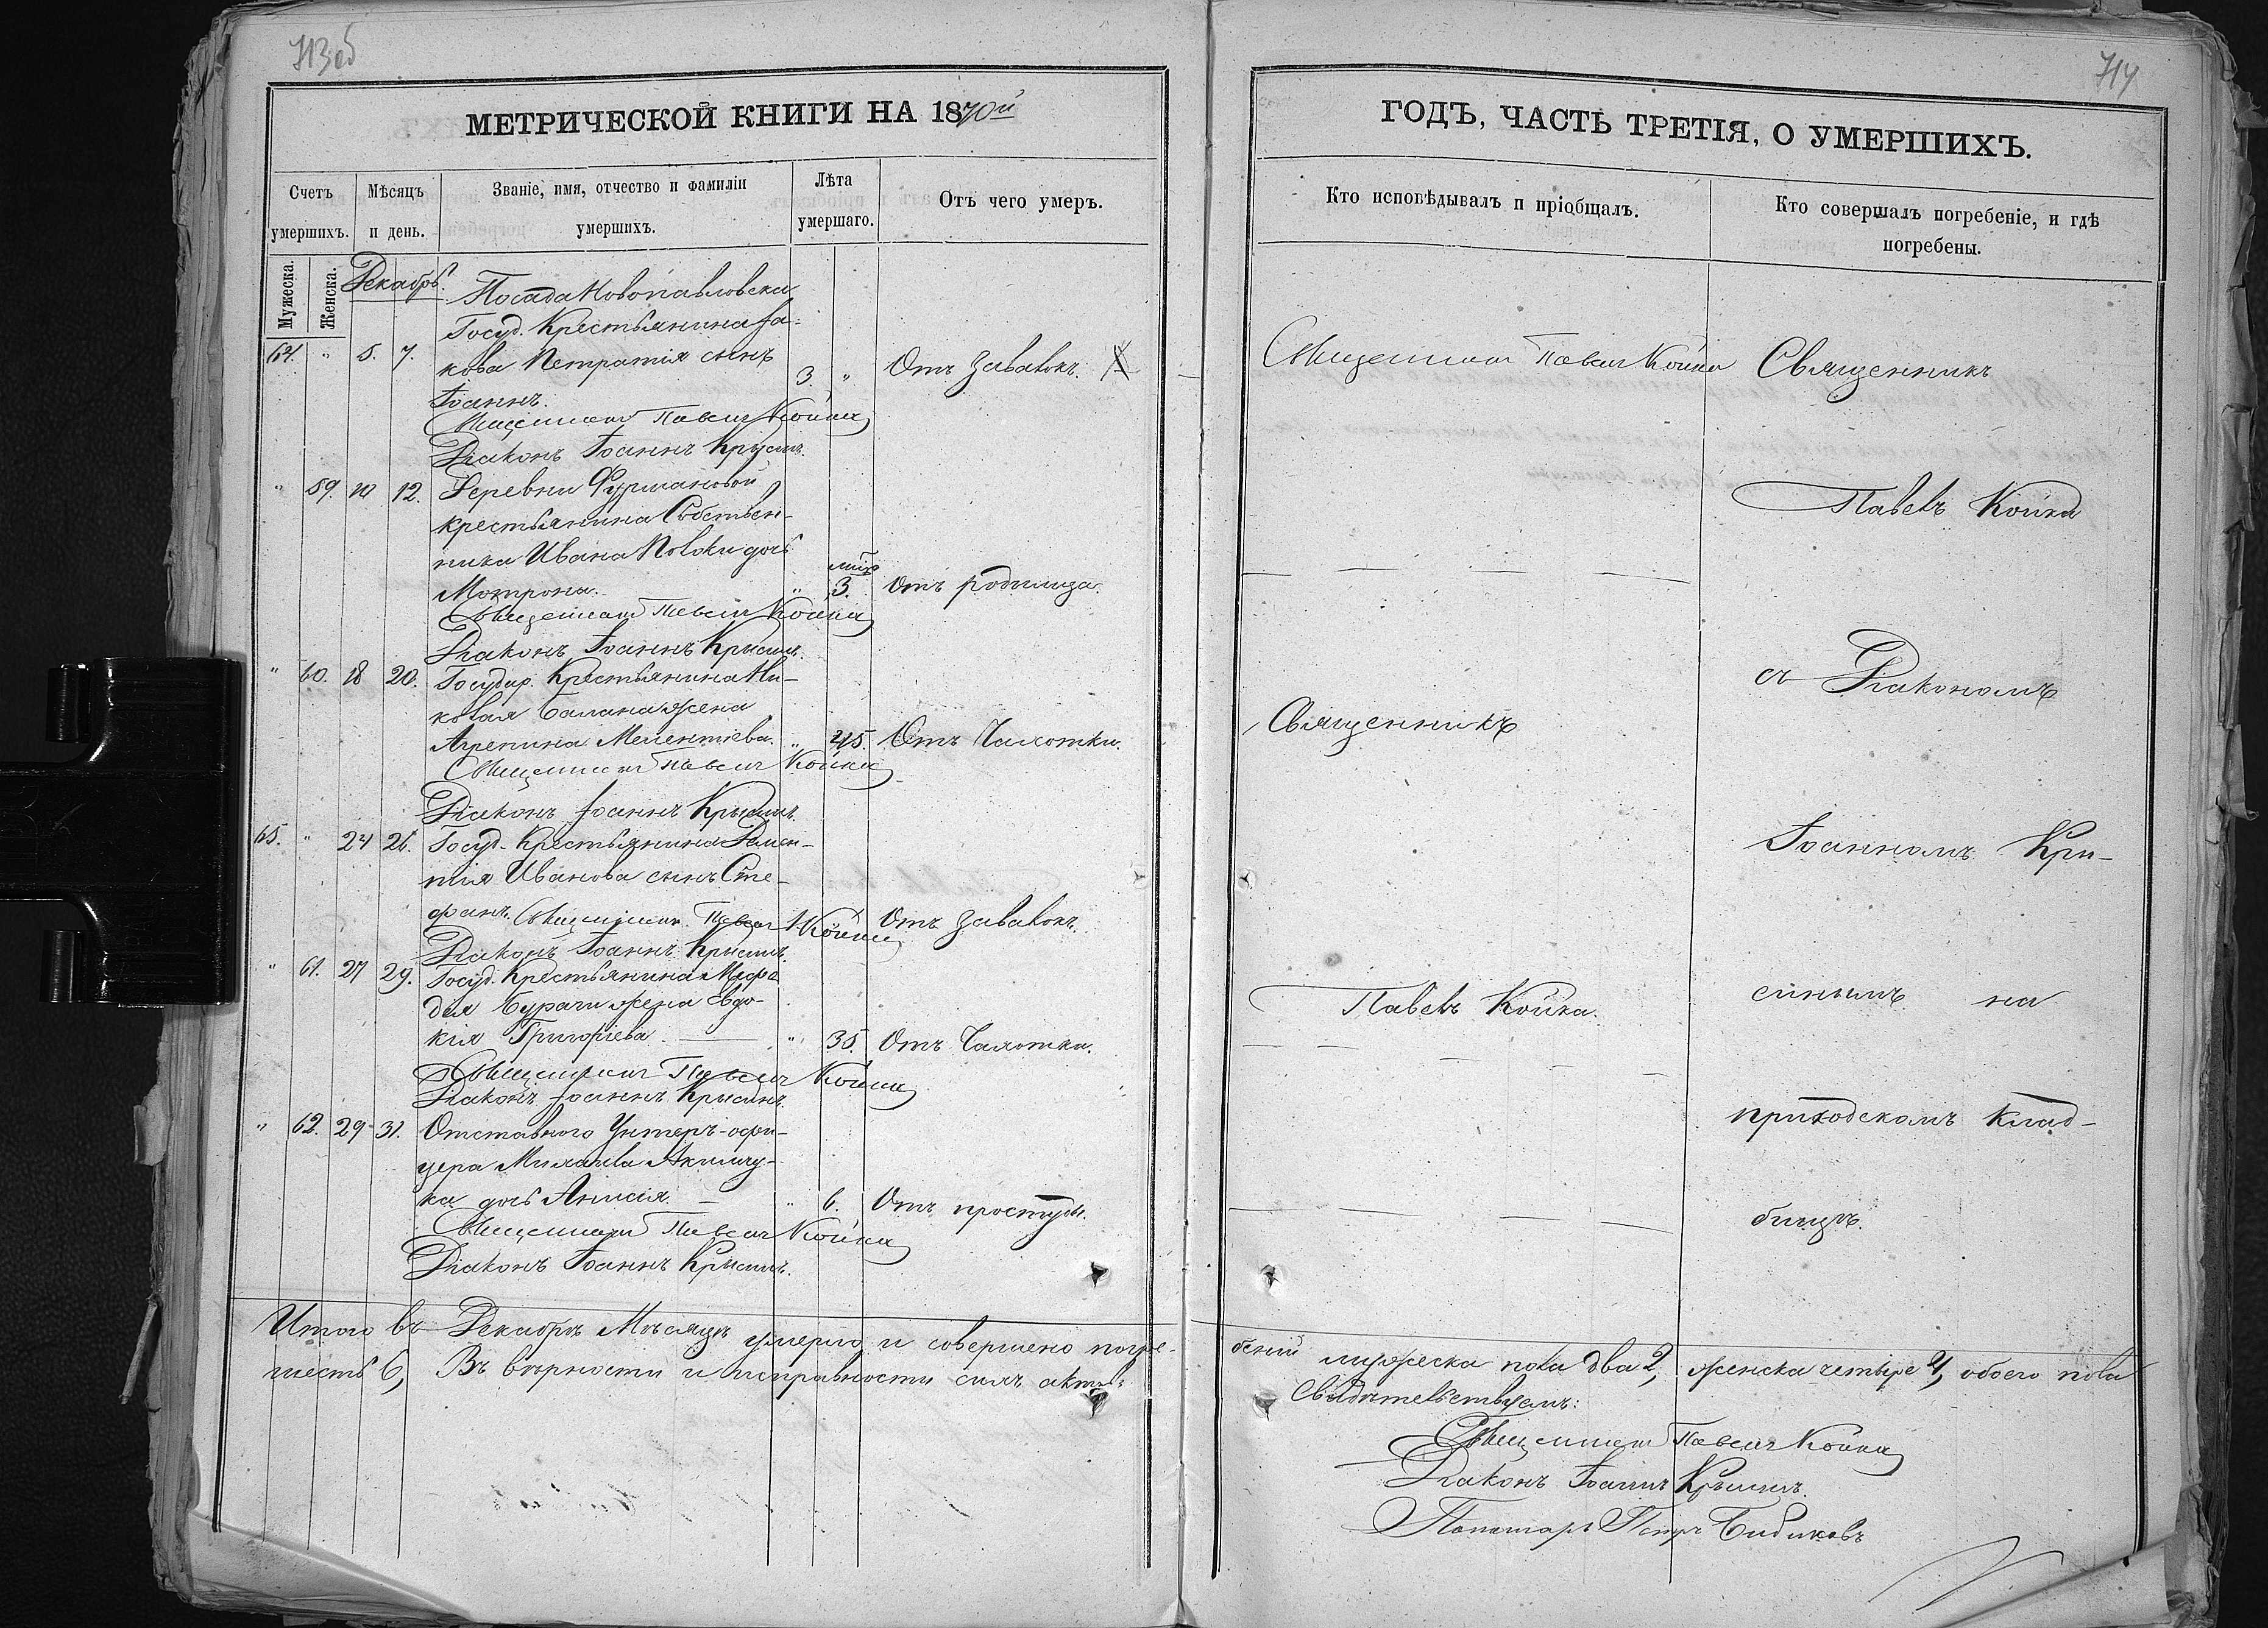 713 об
МЕТРИЧЕСКОЙ КНИГИ НА 1870й
Счетъ умершихъ.
Мѣсяцъ и день.
Званіе, имя, отчество и фамиліи умершихъ.
Лѣта умершаго.
Отъ чего умеръ.
Мужеска.
Женска.
Декабрь.
Посада Новопавловска
Госуд. Крестьянина Іа-
64. " 5. 7. кова Петратія сынъ 3. " Отъ завалокъ.
Іоаннъ.
Священникъ Павелъ Койка
Діаконъ Іоаннъ Крысинъ.
" 59. 10 12. Деревни Фурмановой
крестьянина Собствен-
ника Ивана Поволи дочь
Мотрона. " 3. Отъ родимца.
Священникъ Павелъ Койка
Діаконъ Іоаннъ Крысинъ.
" 60. 18 20. Государ. Крестьянина Ни-
колая Балана жена
Агрепина Мелентіева. " 45. Отъ Чахотки.
Священникъ Павелъ Койка
Діаконъ Іоаннъ Крысинъ.
65. " 24 26. Госуд. Крестьянина Демен-
тія Иванова сынъ Сте-
фанъ. 1 Отъ завалокъ.
Священникъ Павелъ Койка
Діаконъ Іоаннъ Крысинъ.
" 61. 27 29. Госуд. Крестьянина Мефо
дія Бурачи жена Евдо-
кія Григоріева. " 35. Отъ Чахотки.
Священникъ Павелъ Койка
Діаконъ Іоаннъ Крысинъ.
" 62. 29 31. Отставного Унтеръ-офи-
цера Михаила Акимчу-
ка дочь Анисія. " 6. Отъ простуды.
Священникъ Павелъ Койка
Діаконъ Іоаннъ Крысинъ.
Итого въ Декабрѣ Мѣсяцѣ умерло и совершено погре-
шесть 6, Въ вѣрности и исправности сихъ актовъ
714
ГОДЪ, ЧАСТЬ ТРЕТІЯ, О УМЕРШИХЪ.
Кто исповѣдывалъ и пріобщалъ.
Кто совершалъ погребеніе, и гдѣ погребены.
Священникъ Павелъ Койка Священникъ
Павелъ Койка
съ Діакономъ
Священникъ
Іоанномъ Кри-
Павелъ Койка. синымъ на
приходскомъ клад-
бищѣ.
беній мужеска пола два 2, женска четыре 4, обоего пола
Свидѣтельствуемъ:
Священникъ Павелъ Койка
Діаконъ Іоаннъ Крысинъ.
Пономарь Петръ Бидиковъ